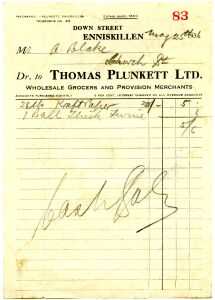 TELEGRAMS: PLUNKETT, ENNISKILLEN
ESTABLISHED 1880
83
DOWN STREET
ENNISKILLEN May 25th 36
Mr A Blake
Church St
Dr. to THOMAS PLUNKETT LTD.
WHOLESALE GROCERS AND PROVISION MERCHANTS
ACCOUNTS FURNISHED MONTHLY 5 PER CENT. INTEREST CHARGED ON ALL OVERDUE ACCOUNTS
28 lbs Kraft Paper 5
1 Ball Thick Twine
5/6
Cash